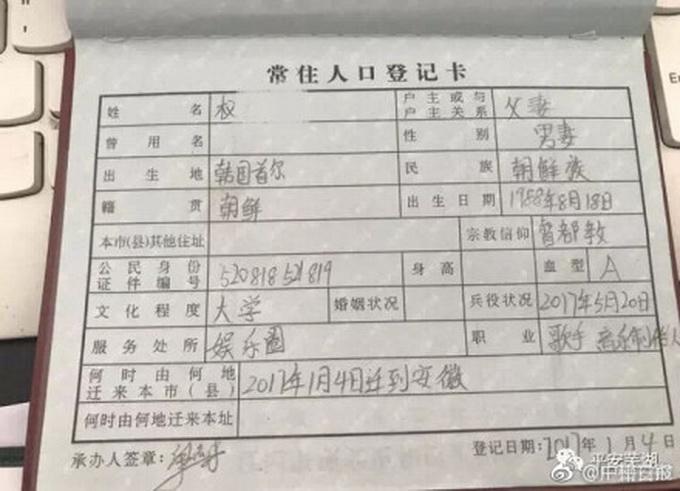 常住人口登记卡
姓名 权 户主或与户主关系 父妻
曾用名 性别 男妻
出生地 韩国首尔 民族 朝鲜族
籍贯 朝鲜 出生日期 1988年8月18日
本市(县)其他住址 宗教信仰 教
公民身份证件编号 身高 血型 A
文化程度 大学 婚姻状况 兵役状况 2017年5月20日
服务处所 娱乐圈 职业 歌手 音乐制作人
何时由何地迁来本市(县) 2017年1月4日迁到安徽
何时由何地迁来本址
承办人签章: 登记日期: 2017年1月4日
平安芜湖
@广州日报
En